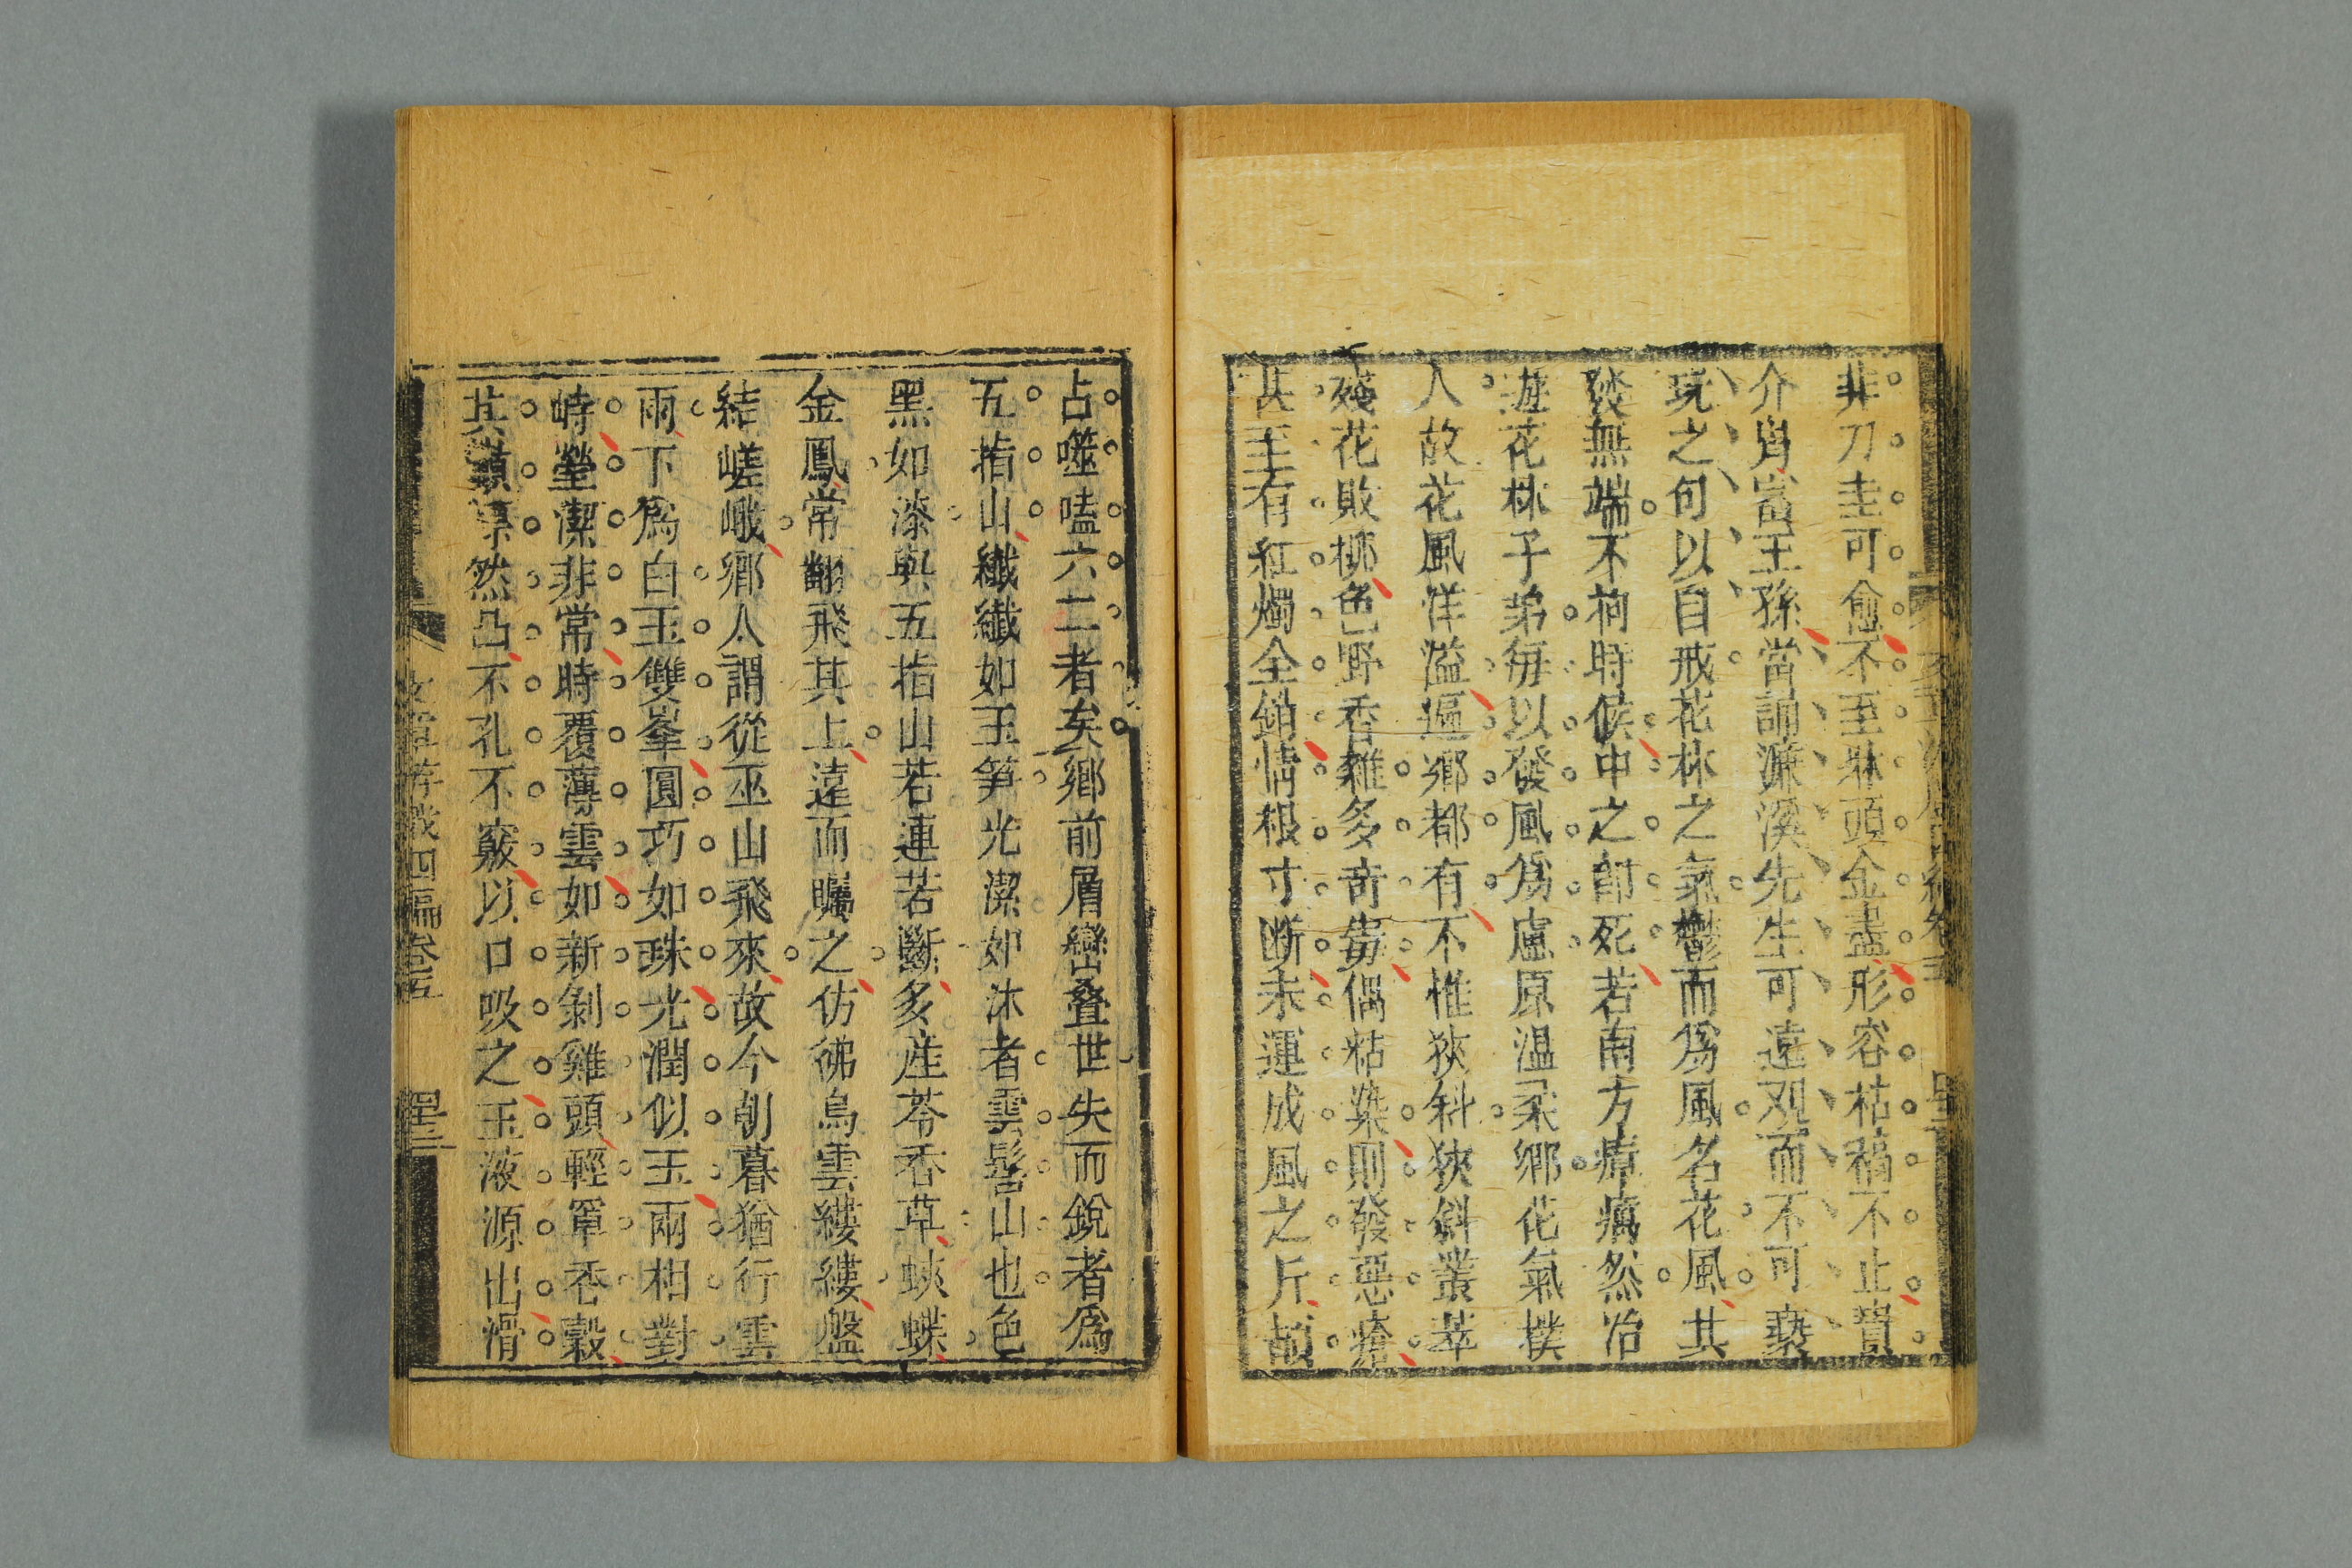 非刀圭可愈不至牀頭金盡形容枯稿不止貴
介胄富王孫當誦濂溪先生可遠观而不可褻
玩之句以自戒花林之氣鬱而爲風名花風其
發無端不拘時候中之卽死若南方瘴癘然冶
遊花林子弟每以發風爲慮原温柔鄉花氣撲
人故花風洋溢遍鄉都有不惟狹斜狹斜叢萃
殘花敗柳色野香雜多奇毒偶粘染則發惡瘡
甚至有紅燭全銷情根寸断未運成風之斤
占噬嗑六二者矣鄉前眉巒叠世失而銳者爲
五指山纖纖如玉笋光潔如沐者雲髻山也色
黑如漆與五指山若連若斷多産苓香草蛱蝶
金鳳常翻飛其上遠而矚之仿彿烏雲縷縷盤
結嵯峨鄉人謂從巫山飛來故今朝暮猶行雲
雨下爲白玉雙峯圓巧如珠光潤似玉兩相對
峙瑩潔非常時覆薄雲如新剝雞頭輕罩香縠
其顛杲然凸不孔不竅以口吸之玉液源出滑
文章游戲四編卷五